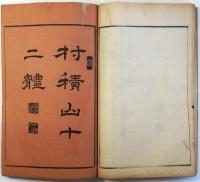 村積山十
二體